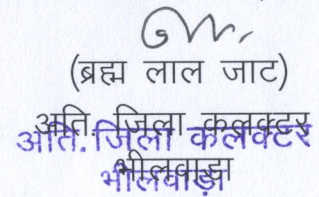 (ब्रह्म लाल जाट)
अति. जिला कलक्टर
भीलवाड़ा
अति. जिला कलक्टर
भीलवाड़ा